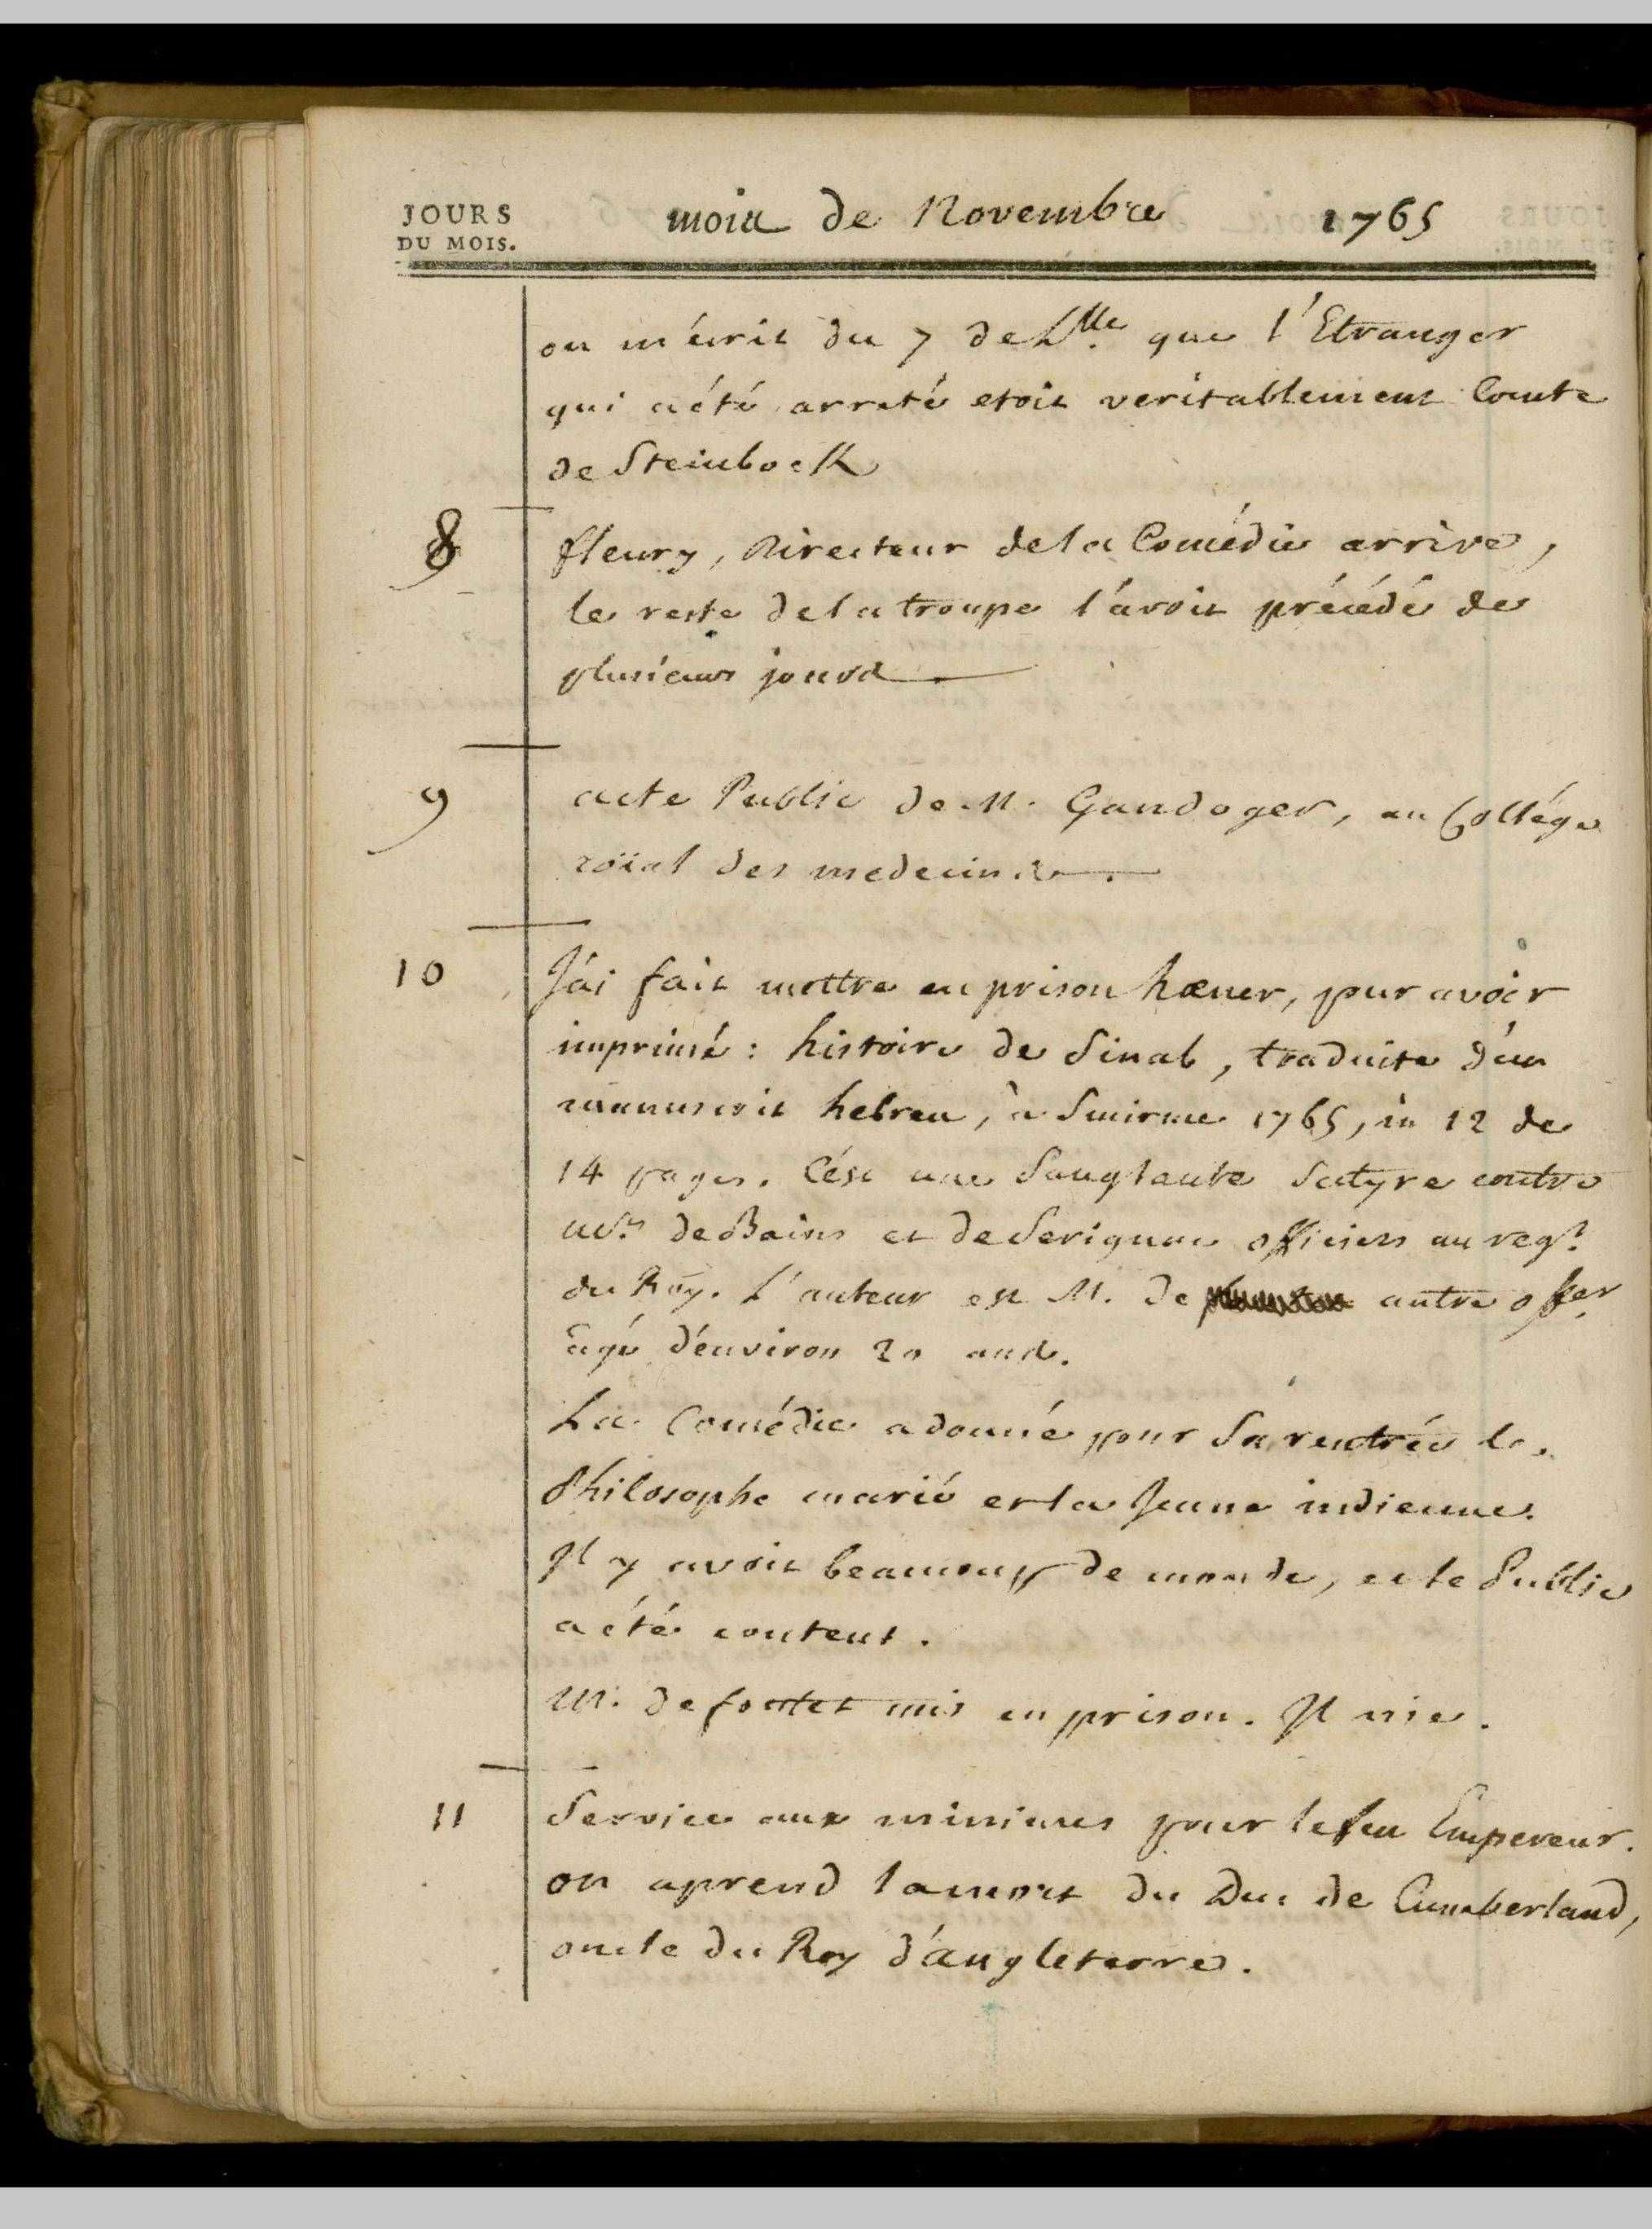 JOURS
DU MOIS.
mois de Novembre 1765
on m'écrit du 7 de L.lle que l'Etranger
qui a été arreté etoit veritablement Comte
de Steinbock
8
fleury, Directeur de la Comédie arrive,
le reste de la troupe l'avoit précédé de
plusieurs jours
9
acte Public de M. Gandoger, au Collége
roïal des medecins.
10
J'ai fait mettre en prison hæner, pour avoir
imprimé : histoire de Sinab, traduite d'un
manuscrit hebreu, à Smirne 1765, in 12 de
14 pages. C'est une Sanglante Satyre contre
Mrs de Bains et de Serignan officiers au regt.
du Roy. L'auteur est M. de autre offer.
âgé d'environ 20 ans.
La Comédie a donné pour Sa rentrée le
Philosophe marié et la Jeune indienne.
Il y avoit beaucoup de monde, et le Public
a été content.
M. de fontet mis en prison. Il nie.
11
Service aux minimes pour le feu Empereur.
on aprend la mort du Duc de Cumberland,
oncle du Roy d'angleterre.